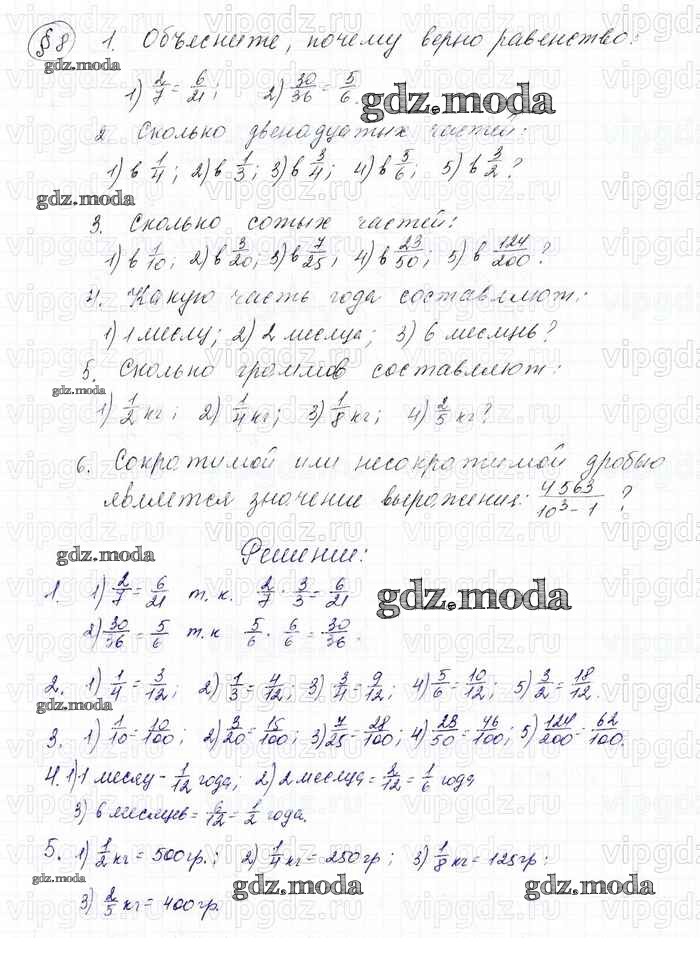 §8 1. Объясните, почему верно равенство:
gdz.moda
1) 2/7 = 6/21; 2) 30/36 = 5/6.
gdz.moda
2 Сколько двенадцатых частей:
1) в 1/4; 2) в 1/3; 3) в 3/4; 4) в 5/6; 5) в 3/2?
gdz.moda
3. Сколько сотых частей:
1) в 1/10; 2) в 3/20; 3) в 7/25; 4) в 23/50; 5) в 124/200?
4. Какую часть года составляют:
1) 1 месяц; 2) 2 месяца; 3) 6 месяцев?
5. Сколько граммов составляют:
gdz.moda
1) 1/2 кг; 2) 1/4 кг; 3) 1/8 кг; 4) 2/5 кг?
6. Сократимой или несократимой дробью
является значение выражения: 4563/10³-1 ?
gdz.moda
Решение:
1. 1) 2/7 = 6/21 т.к. 2/7 · 3/3 = 6/21
gdz.moda
2) 30/36 = 5/6 т.к 5/6 · 6/6 = 30/36.
2. 1) 1/4 = 3/12; 2) 1/3 = 4/12; 3) 3/4 = 9/12; 4) 5/6 = 10/12; 5) 3/2 = 18/12.
gdz.moda
3. 1) 1/10 = 10/100; 2) 3/20 = 15/100; 3) 7/25 = 28/100; 4) 23/50 = 46/100; 5) 124/200 = 62/100.
4. 1) 1 месяц - 1/12 года; 2) 2 месяца = 2/12 = 1/6 года
3) 6 месяцев = 6/12 = 1/2 года.
5. 1) 1/2 кг = 500 гр.; 2) 1/4 кг = 250 гр; 3) 1/8 кг = 125 гр;
gdz.moda gdz.moda gdz.moda
3) 2/5 кг = 400 гр.